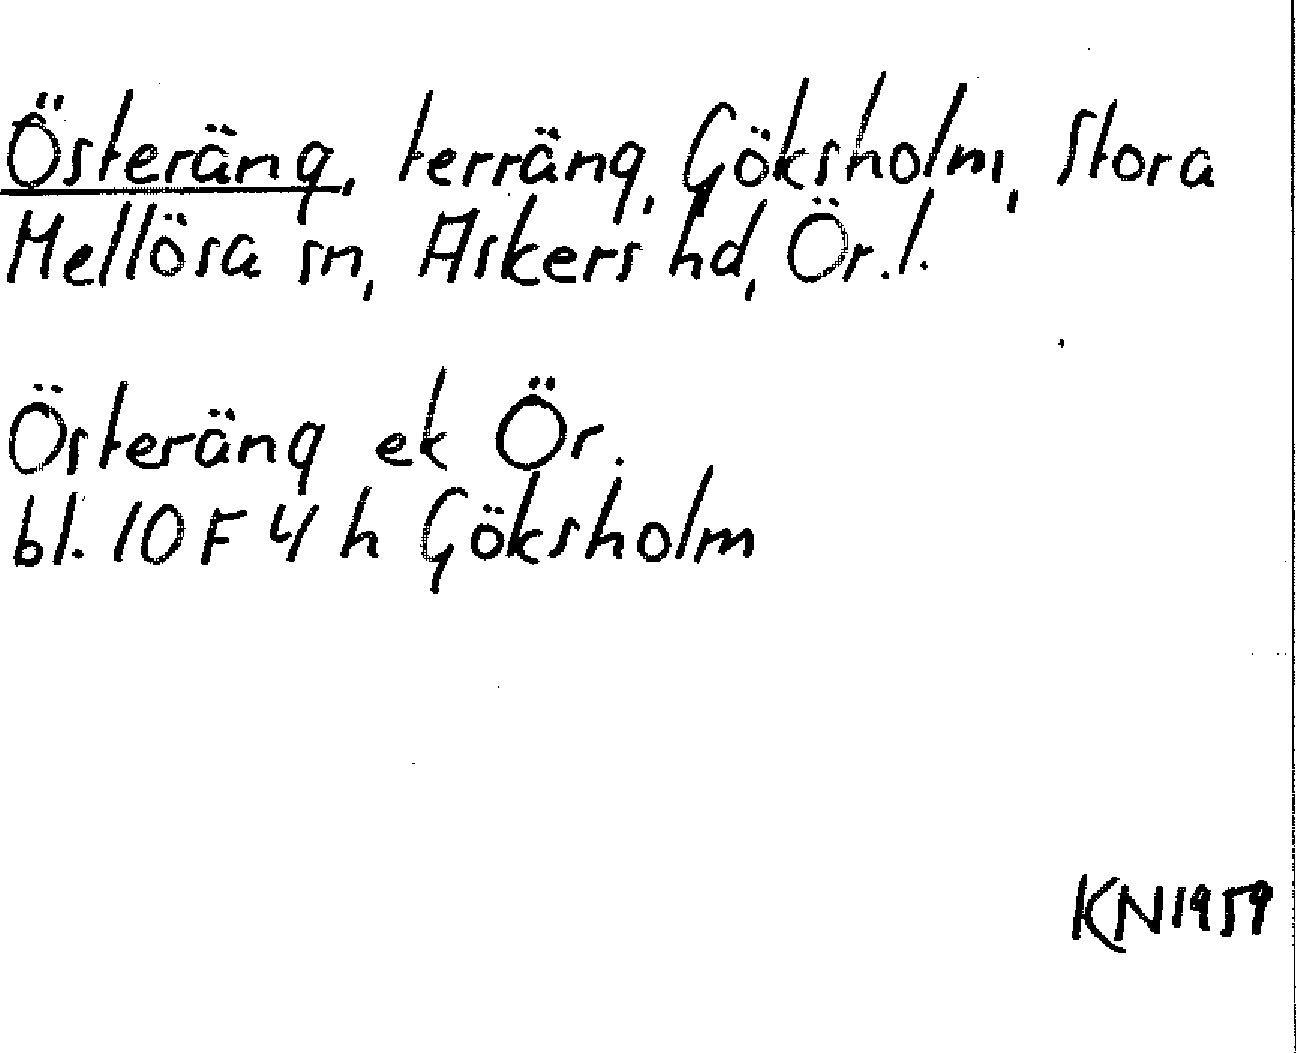 Österäng, terräng, Göksholm, Stora
Mellösa sn, Askers hd, Ör.l.
Österäng ek Ör.
bl. 10 F 4 h Göksholm
KN1959